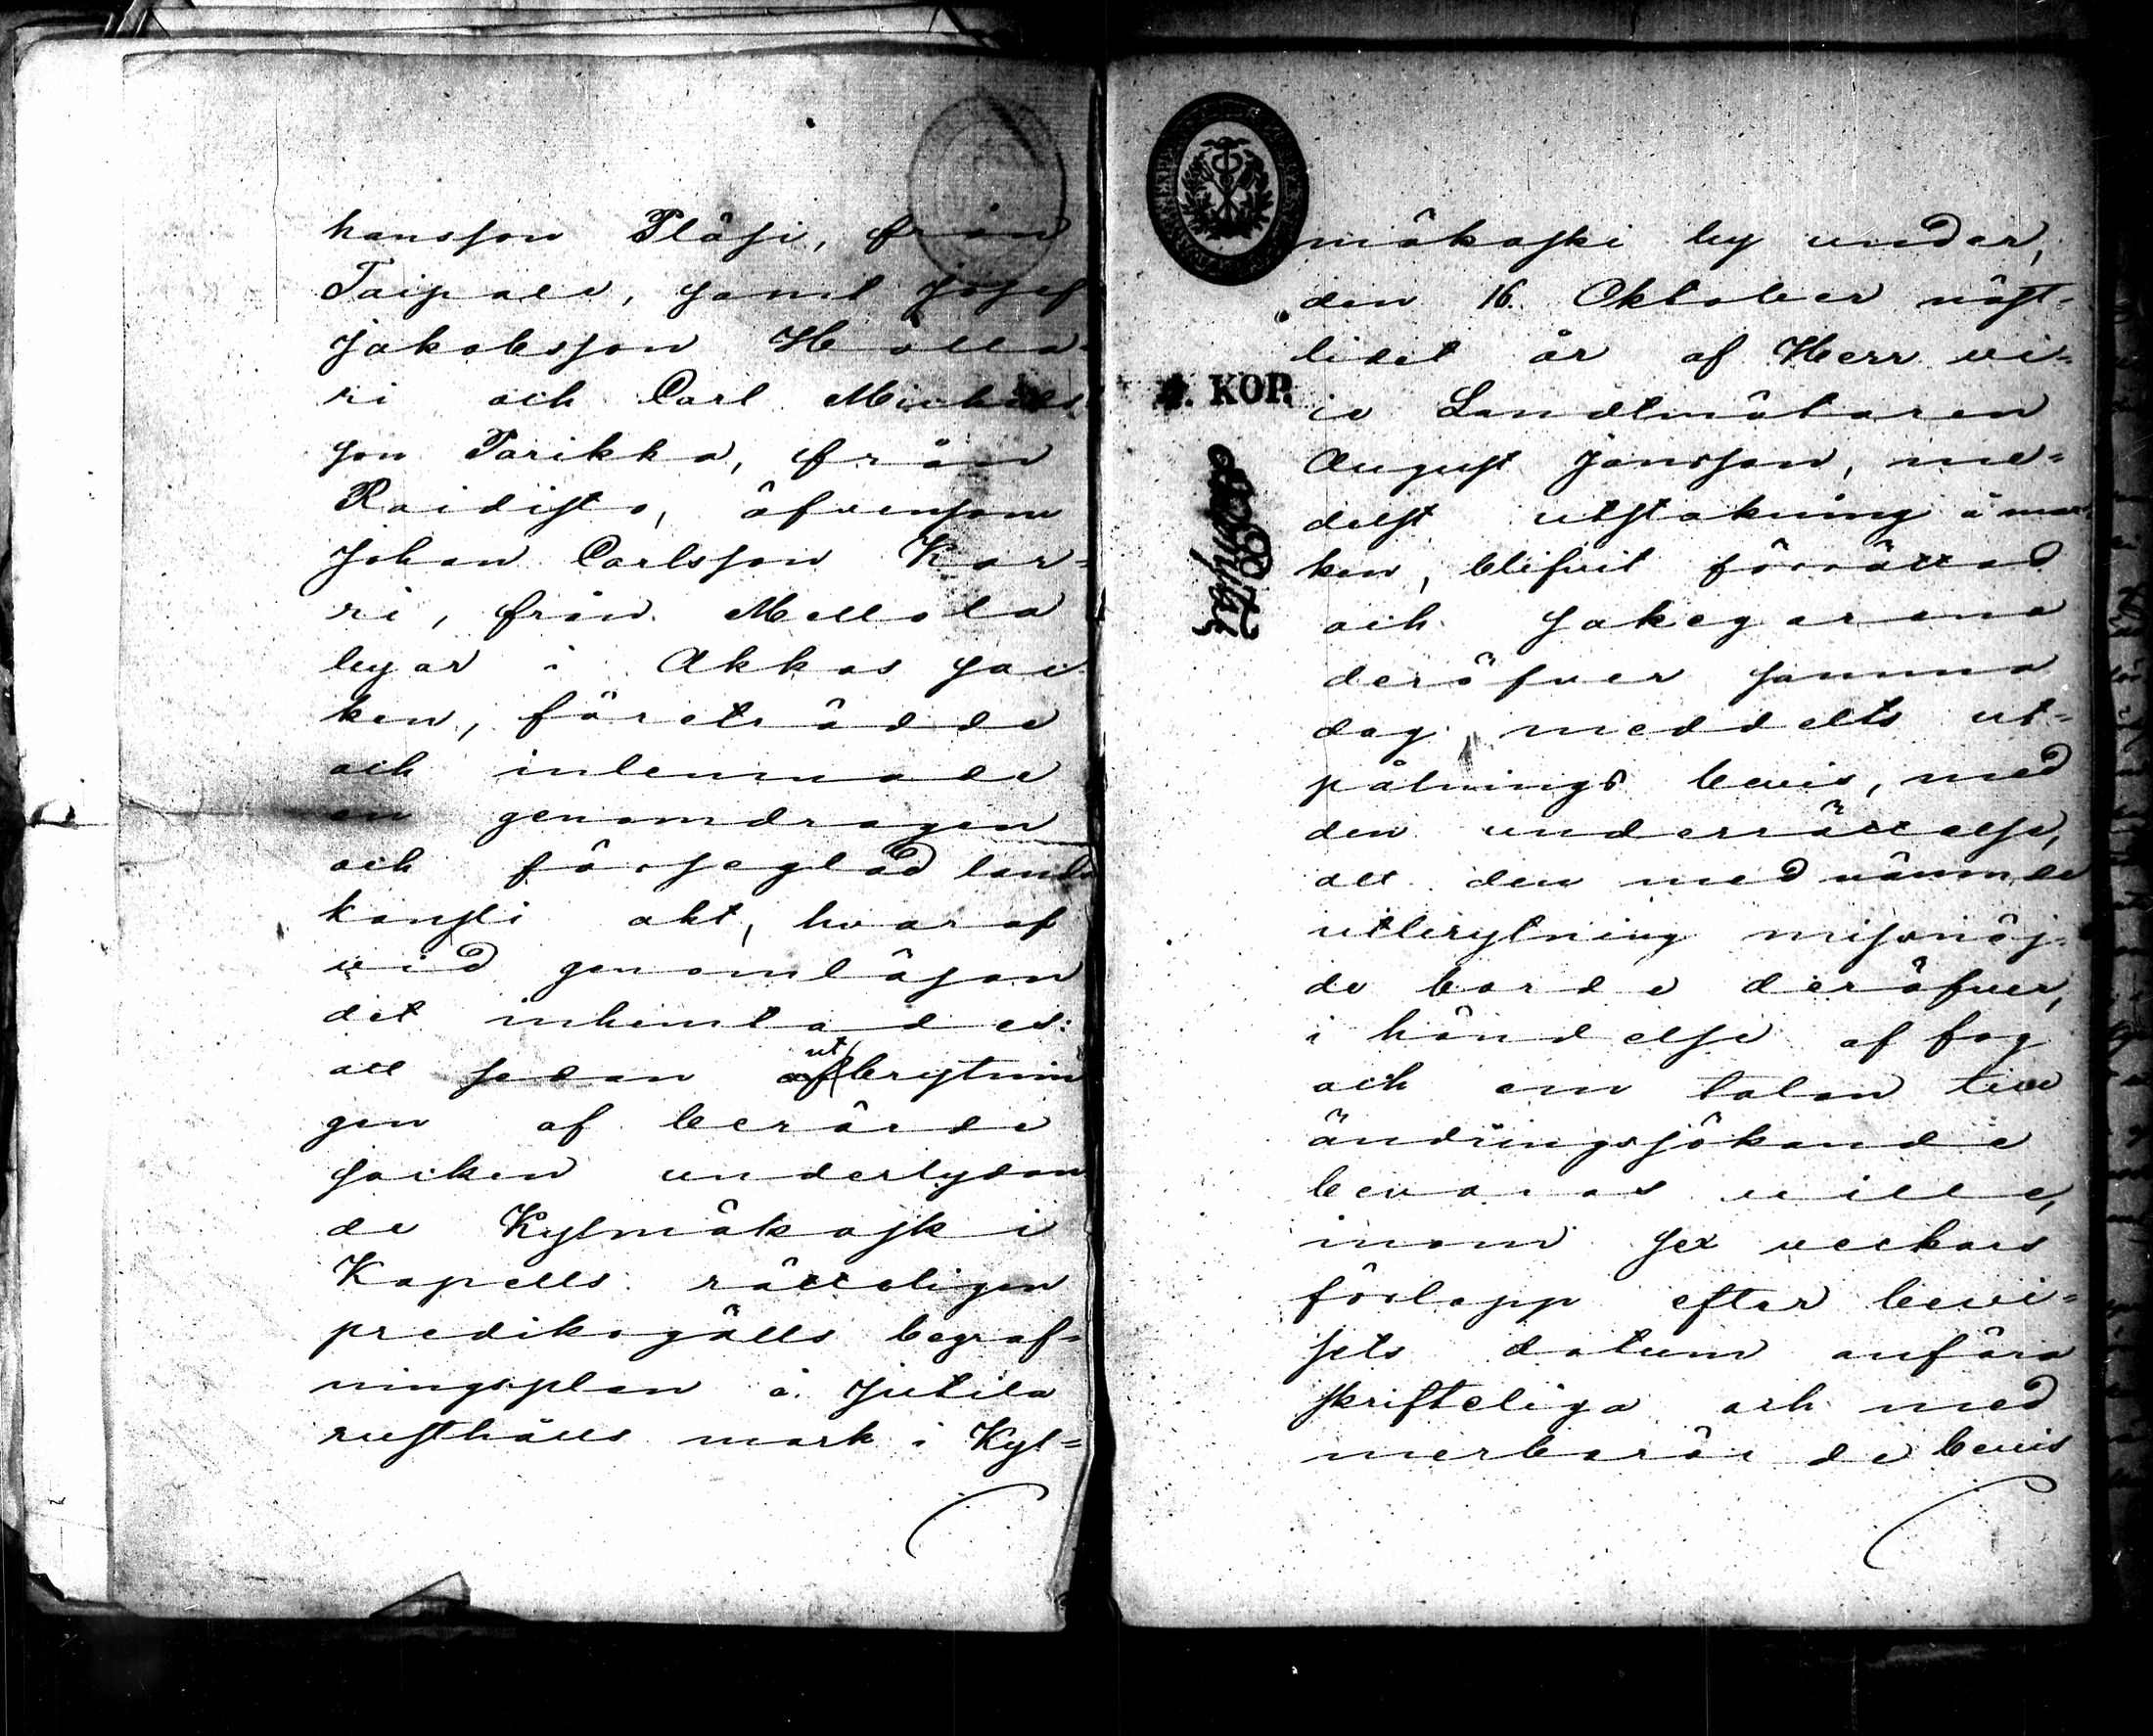 hansson Pläsi, från
Taipale, samt Josef
Jakobsson Hölla-
ri och Carl Michels
son Parikka, från
Raidisto, äfvensom
Johan Carlsson Kar=
ri, från Mellola
byar i Akkas soc
ken, företrädde
och inlemnade
en genomdragen
och förseglad lands
kansli akt, hvaraf
vid genomläsan
det inhemtades:
att sedan ut brytnin
gen af berörde
socken underlydan
de Kylmäkoski
Kapells rätteligen
predikogälls begraf=
ningsplan å Jutila
rusthålls mark i Kyl=
mäkoski by under,
den 16. Oktober näst=
lidet år af Herr vi=
ce Landtmätaren
August Jansson, me=
delst utstakning å mar
ken, blifvit förrättad
och sakegarena
deröfver samma
dag meddelts ut=
pålnings bevis, med
den underrättelse,
att den med nämnde
utbrytning missnöj=
de borde deröfver,
i händelse af fog
och om talan till
ändringssökande
bevaras ville,
inom sex veckors
förlopp efter bevi=
sets datum anföra
skrifteliga och med
merberörde bevis
KOP.